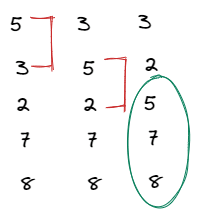 5 3 3
3 5 2
2 2 5
7 7 7
8 8 8